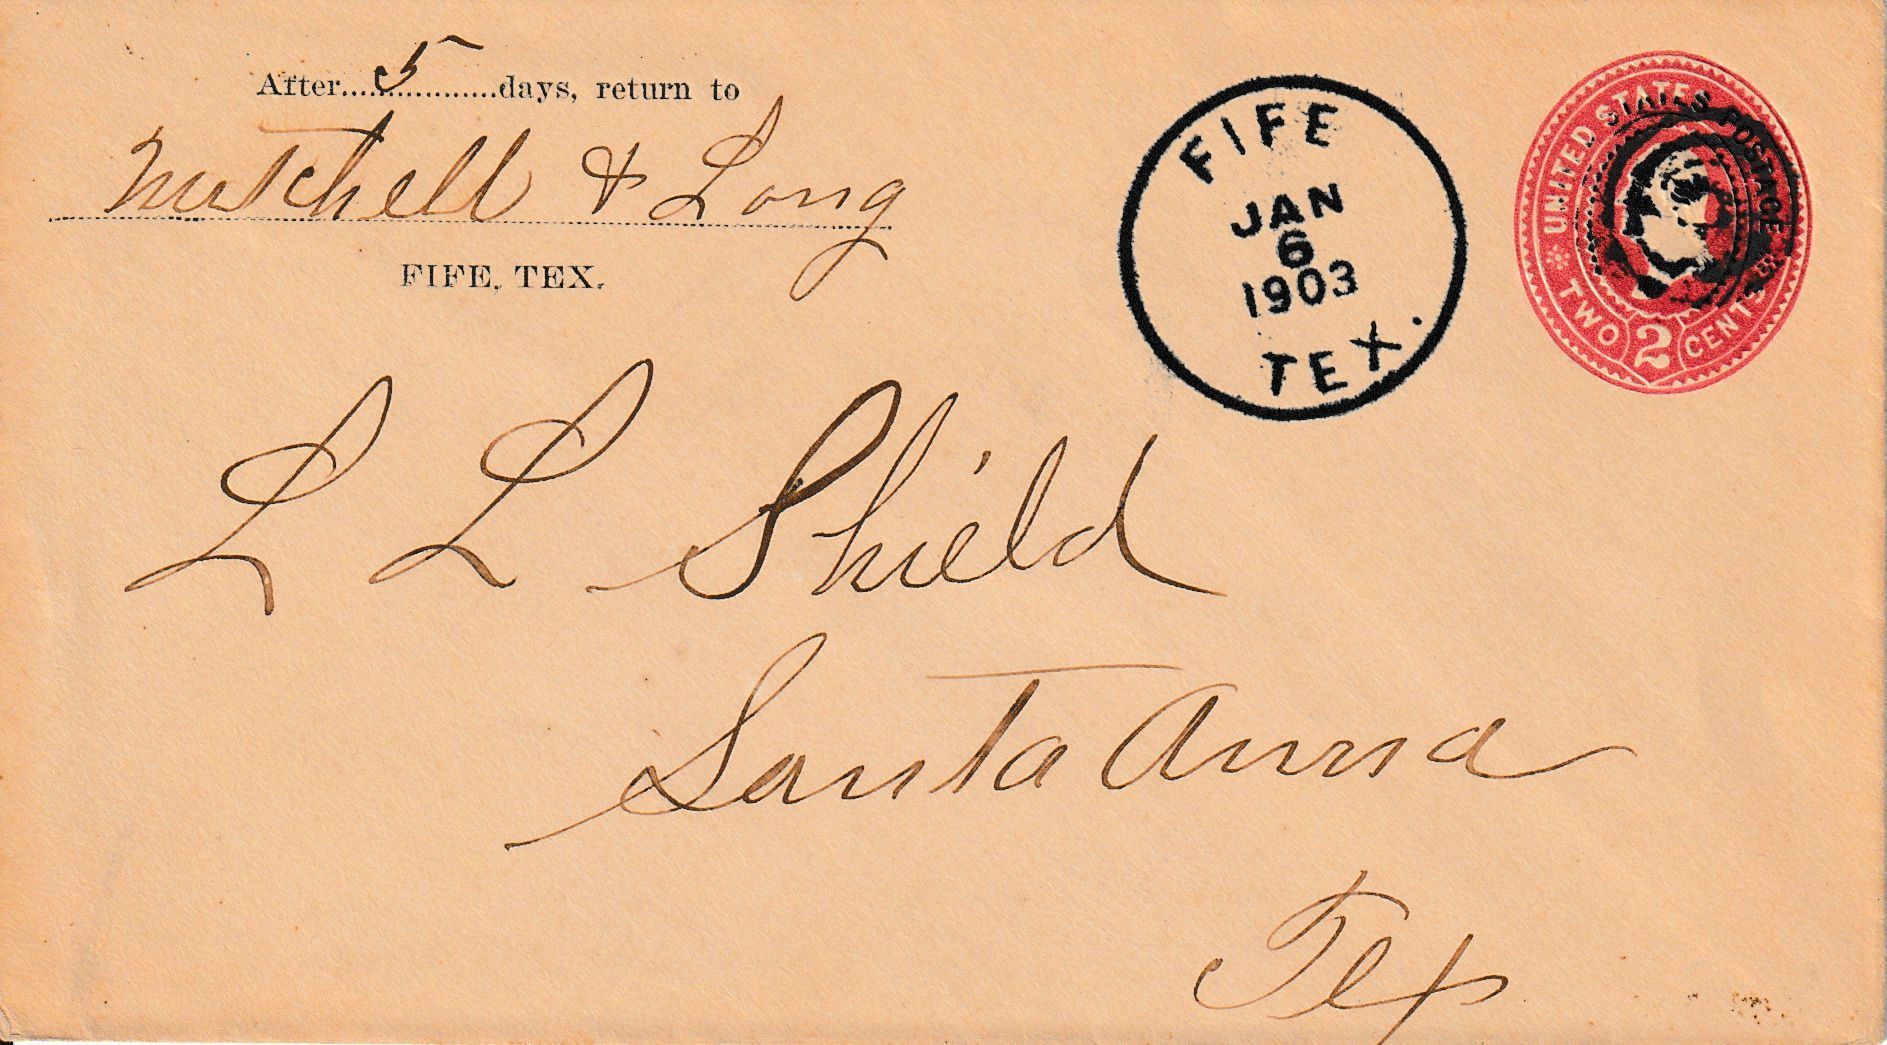 After 5 days, return to
Mitchell & Long
FIFE, TEX.
FIFE
JAN
6
1903
TEX.
UNITED STATES POSTAGE
TWO 2 CENTS
L L Shield
Santa Anna
Tex